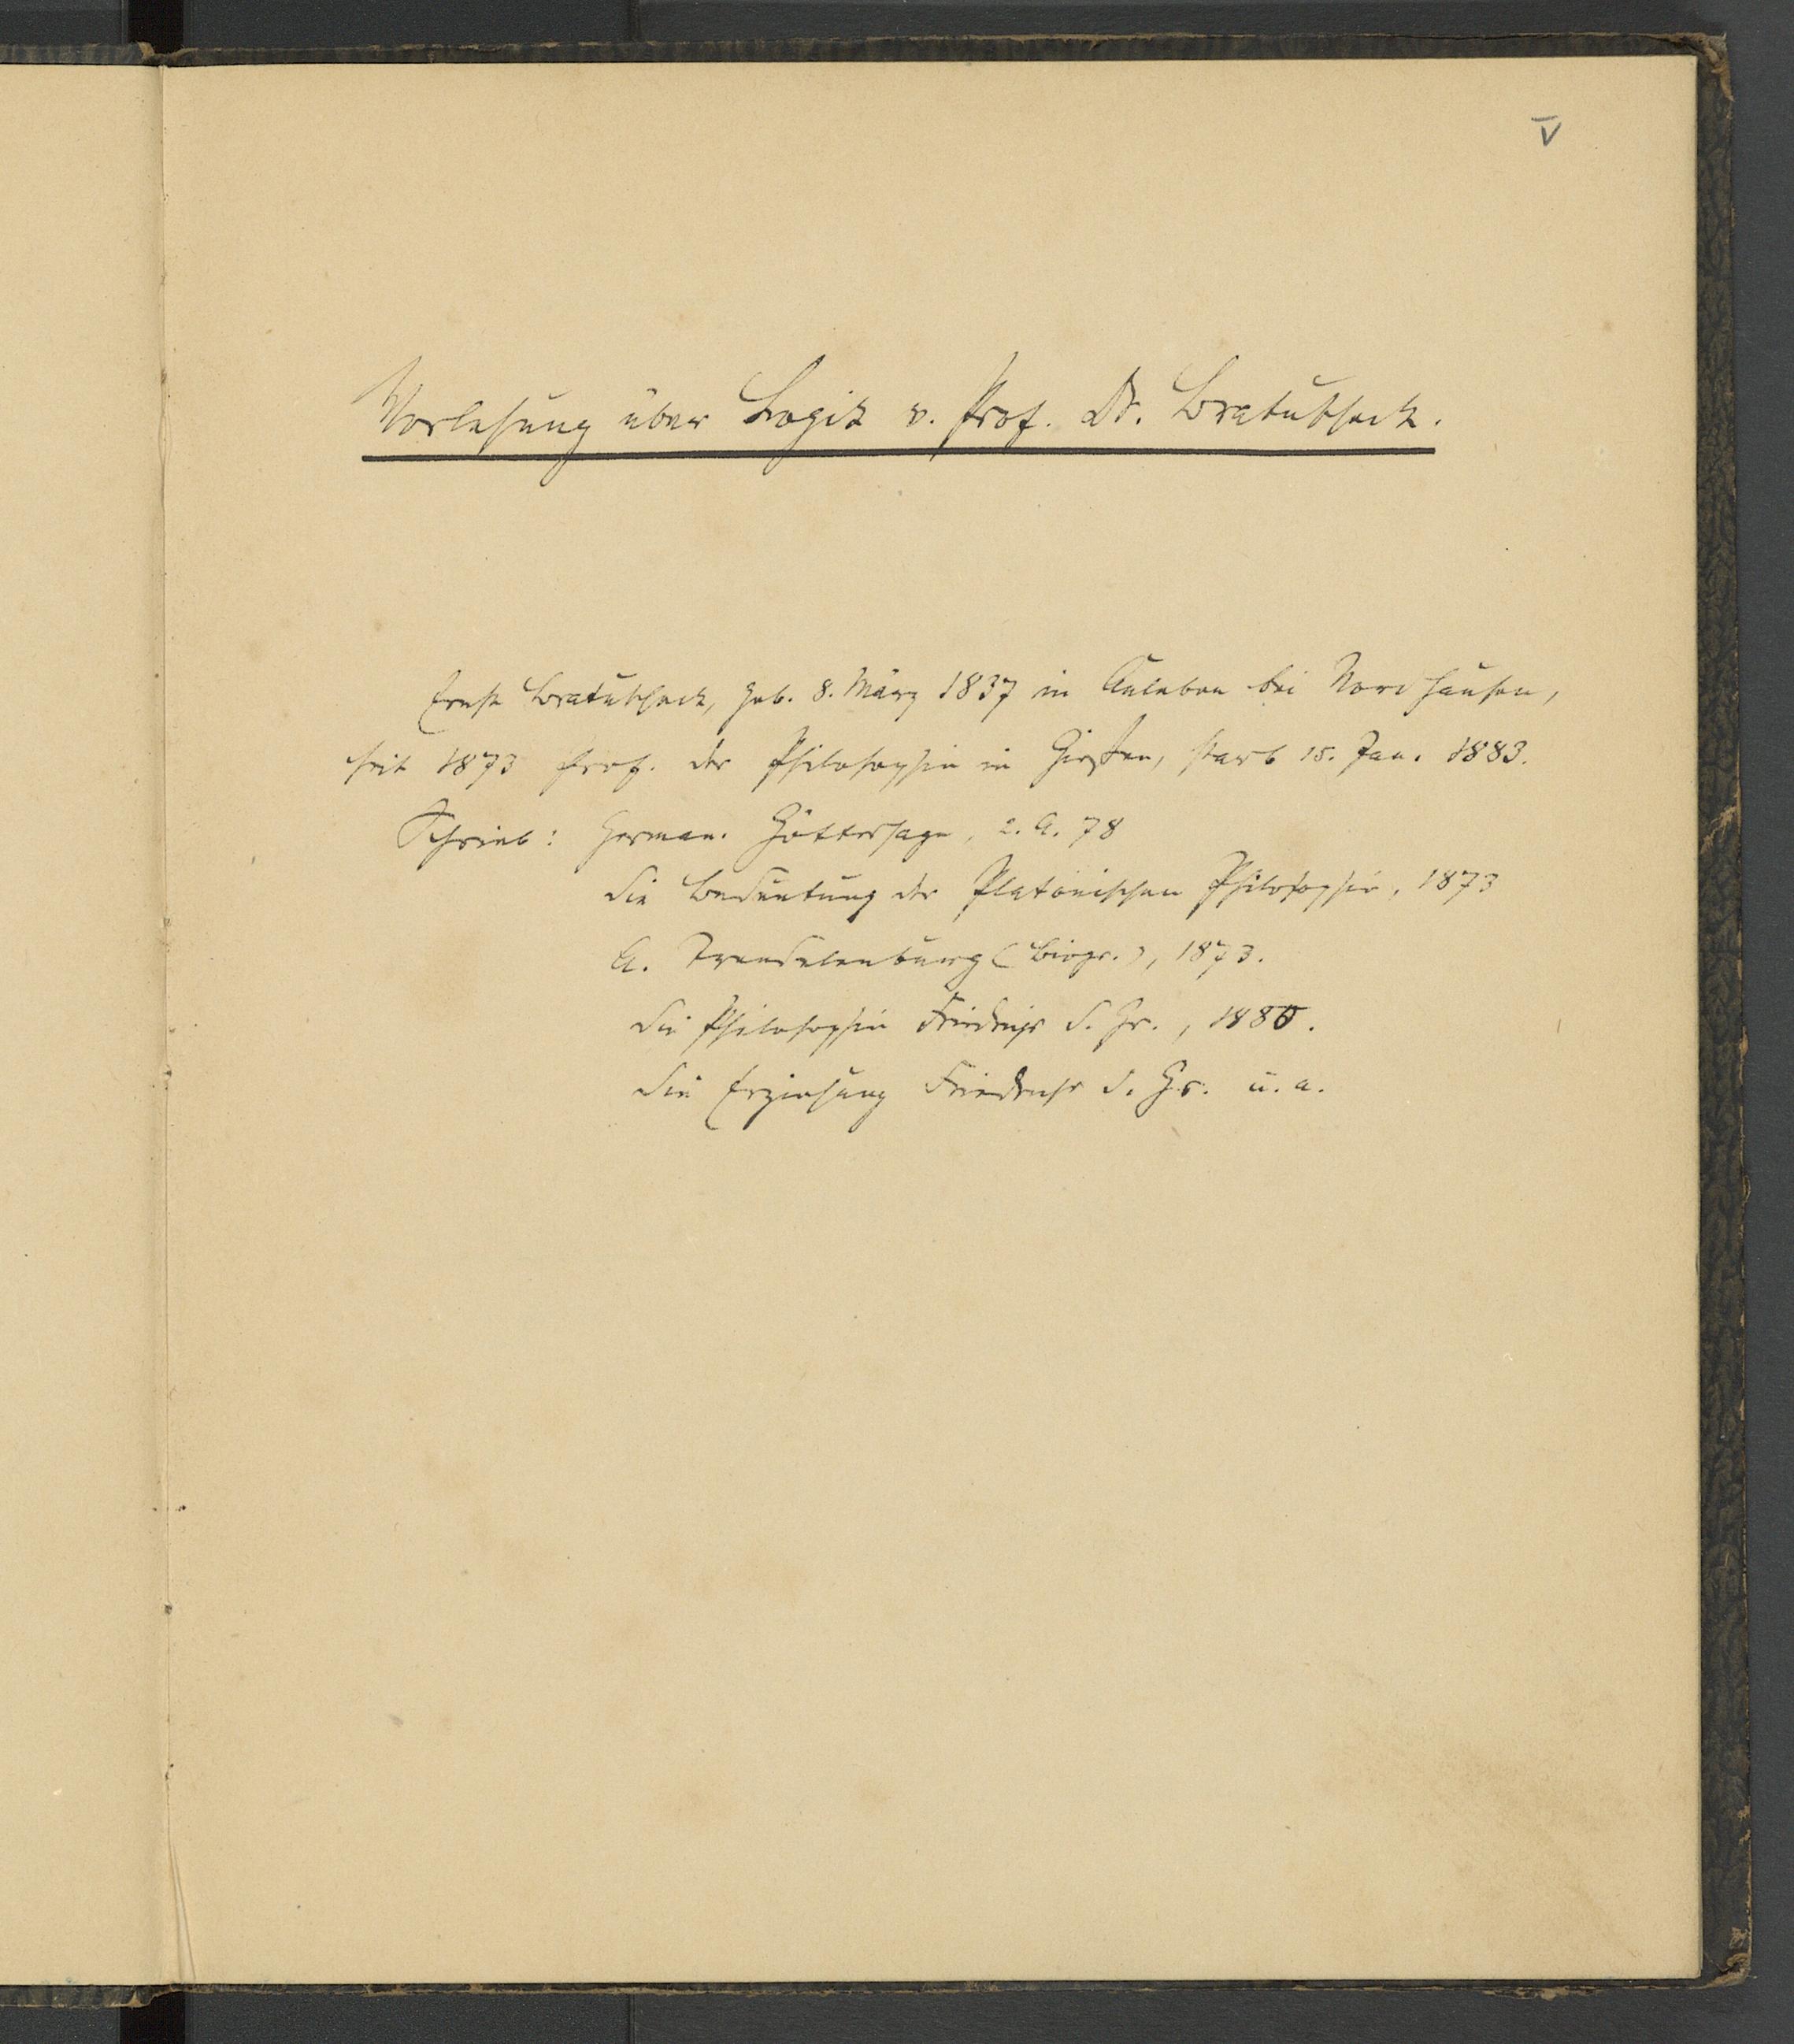 V
Vorlesung über Logik v. Prof. Dr. Bratuscheck.
Ernst Bratuscheck, geb. 8. März 1837 in Auleben bei Nordhausen,
seit 1873 Prof. der Philosophie in Gießen, starb 15. Jan. 1883.
Schrieb: German. Göttersage, 2. A. 78
Die Bedeutung der Platonischen Philosophie, 1873
A. Trendelenburg (Biogr.), 1873.
Die Philosophie Friedrichs d. Gr., 1880.
Die Erziehung Friedrichs d. Gr. u. a.